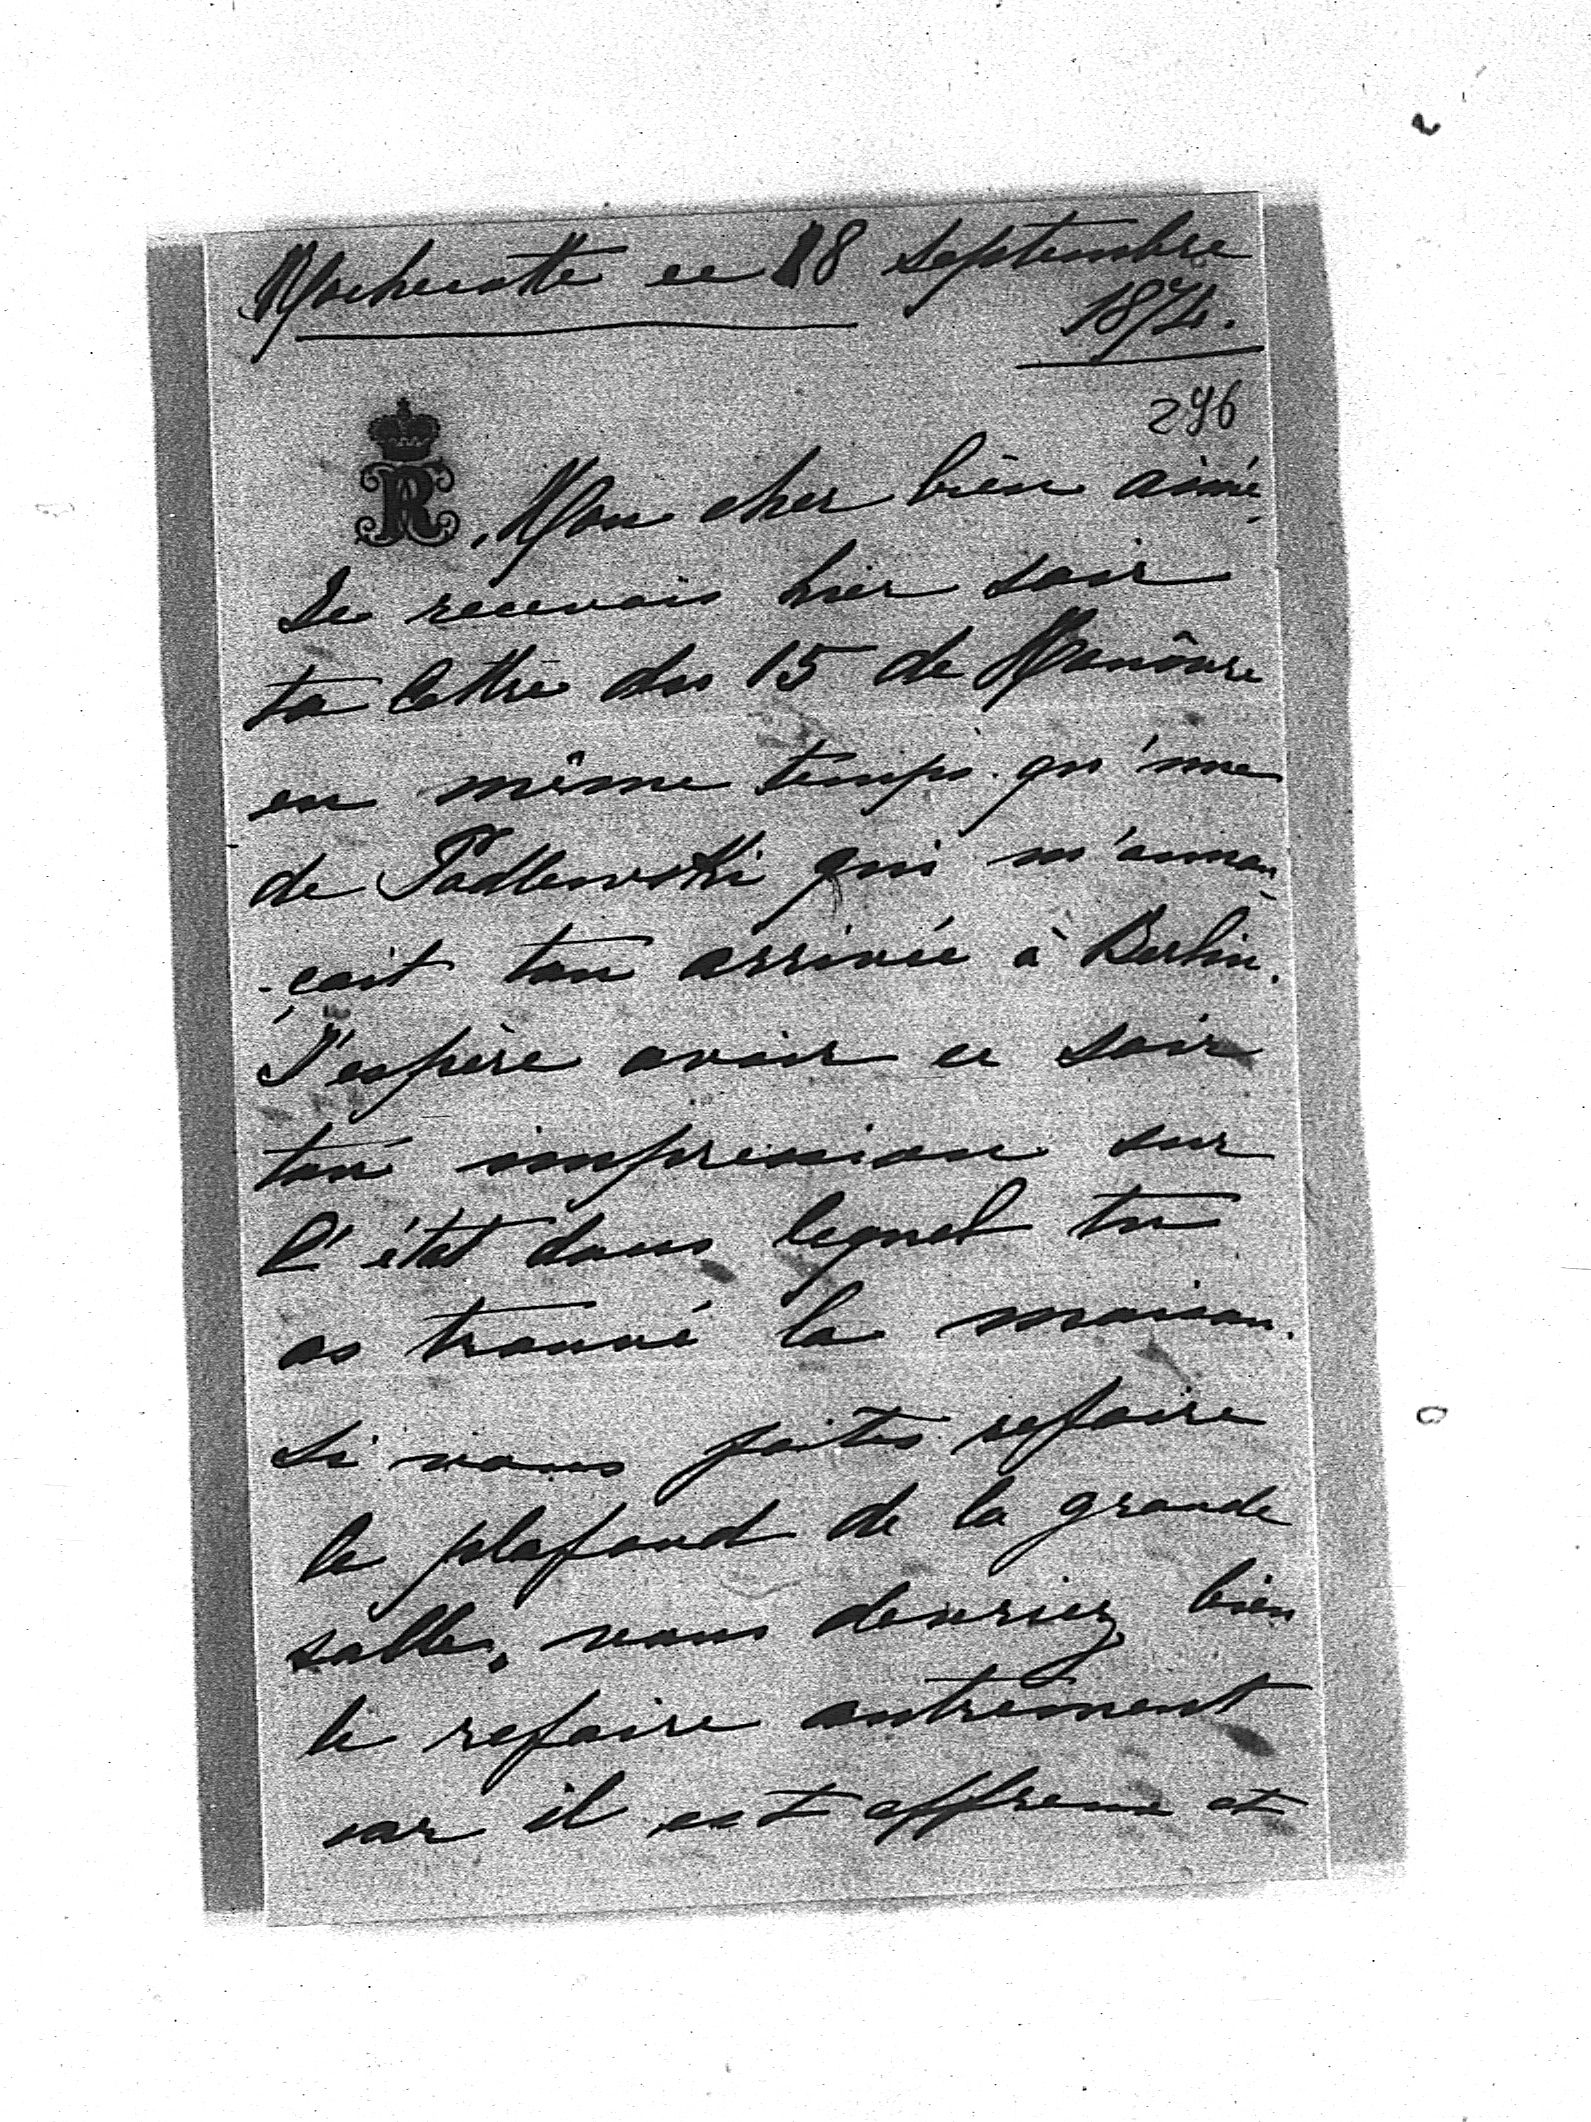 Rochecotte ce 18 septembre
1874.
296
Mon cher bien aimé,
Je recevais hier soir
ta lettre du 15 de Hanôvre
en même temps qu'une
de Padlewski qui m'annon
-çait ton arrivée à Berlin.
J'espère avoir ce soir
ton impression sur
l'état dans lequel tu
as trouvé la maison.
Si vous faites refaire
le plafond de la grande
salle, vous devriez bien
le refaire autrement
car il est affreux et